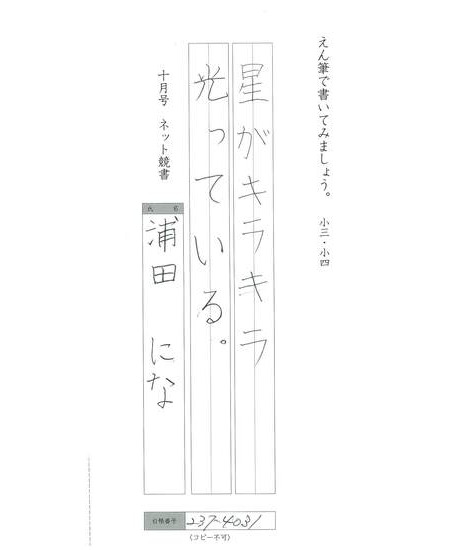 えん筆で書いてみましょう。 小三・小四
星がキラキラ
光っている。
十月号 ネット競書
氏名
浦田 にな
台帳番号 237-4031
(コピー不可)